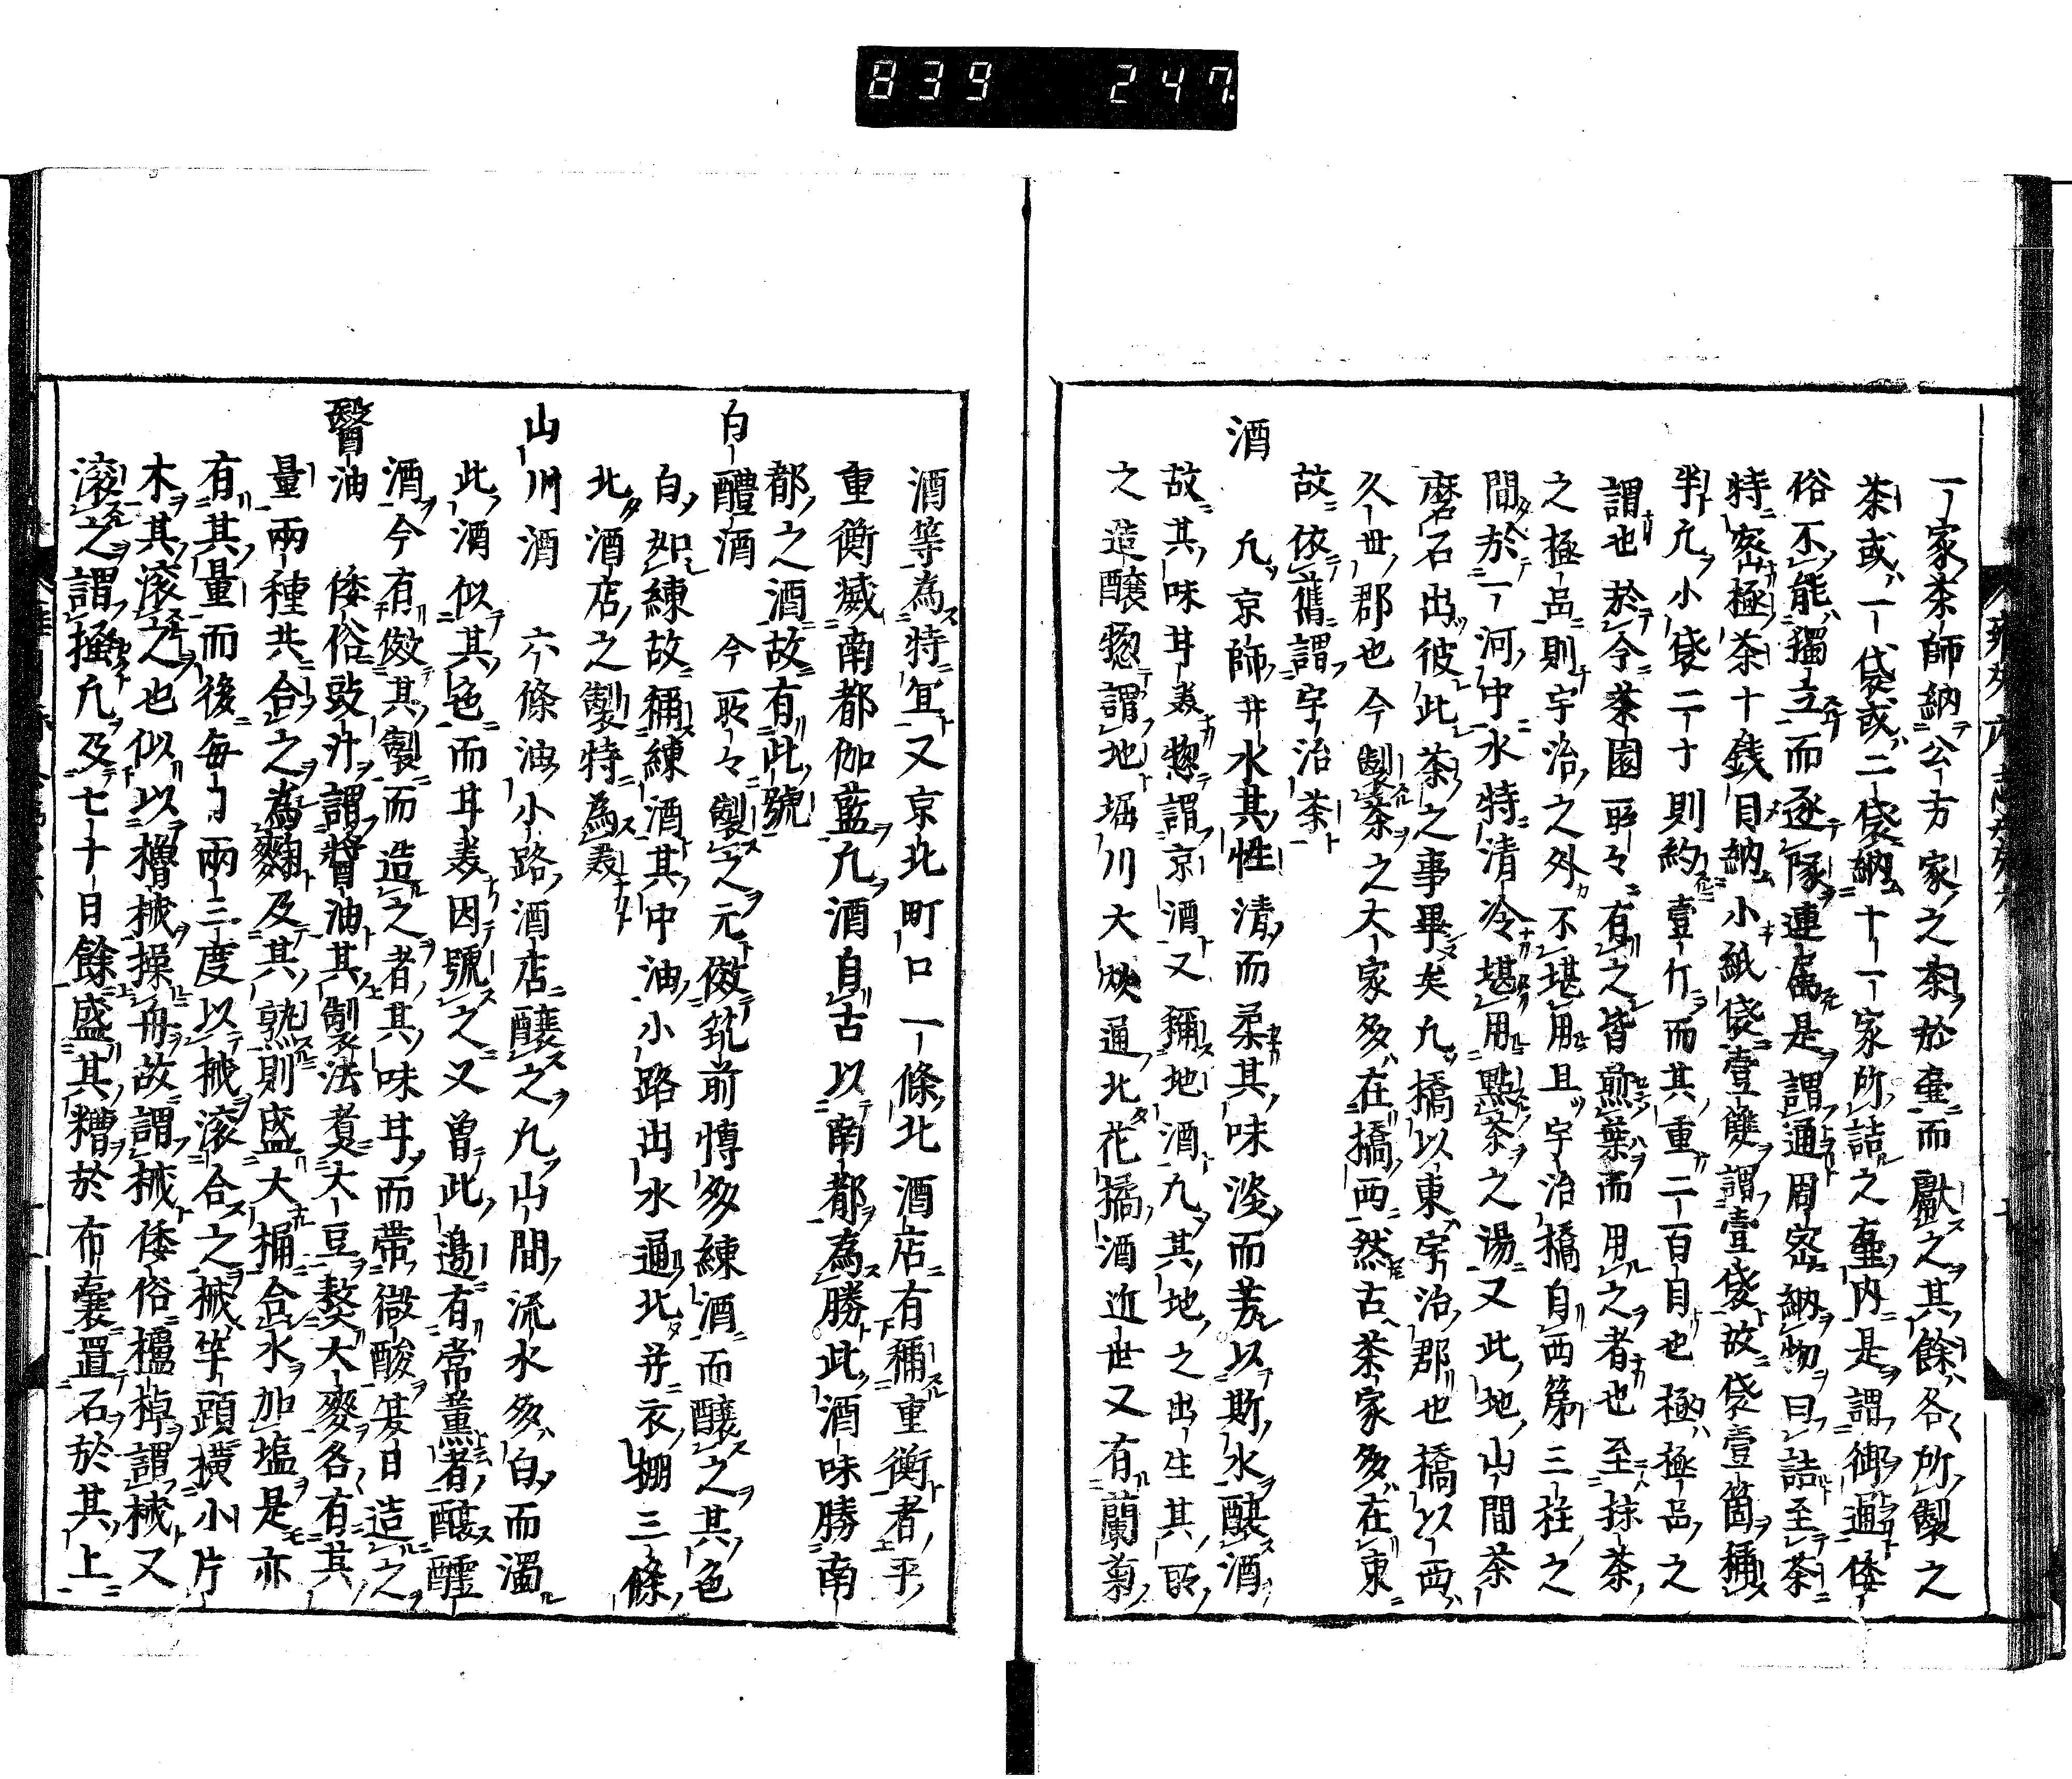 839 247
一家茶師納公方家之茶於壷而獻之其餘各所製之
茶或一袋或二袋納十一家所詰之壷内是謂御通倭
俗不能獨立而逐隊連屬是謂通周密納物曰詰至茶
特密極茶十錢目納小紙袋壹雙謂壹袋故袋壹箇稱
半凡小袋二十則約壹斤而其重二百目也極極品之
謂也於今茶園所々有之皆煎葉而用之者也至抹茶
之極品則宇治之外不堪用且宇治橋自西第三柱之
間於一河中水特清冷堪用點茶之湯又此地山間茶
磨石出彼此茶之事畢矣凡橋以東宇治郡也橋以西
久世郡也今製茶之大家多在橋西然古茶家多在東
故依舊謂宇治茶
酒 凡京師井水其性清而柔其味淡而芳以斯水釀酒
故其味甘美惣謂京酒又稱地酒凡其地之出生其所
之造釀惣謂地堀川大炊通北花橘酒近世又有蘭菊
酒等為特宜又京北町口一條北酒店有稱重衡者平
重衡滅南都伽藍凡酒自古以南都為勝此酒味勝南
都之酒故有此號
白醴酒 今所々製之元傚筑前博多練酒而釀之其色
白如練故稱練酒其中油小路出水通北并衣棚三條
北酒店之製特為美
山川酒 六條油小路酒店釀之凡山間流水多白而濁
此酒似其色而甘美因號之又曽此邊有常薫者釀醴
酒今有傚其製而造之者其味甘而帶微酸每日造之
醤油 倭俗豉汁謂醤油其製法煮大豆熬大麥各有其
量兩種共合之為麴及其熟則盛大桶合水加塩是亦
有其量而後每日兩三度以械滾合之械竿頭横小片
木其滾之也似以櫓械操舟故謂械倭俗櫨棹謂械又
滾之謂掻凡及七十日餘盛其糟於布嚢置石於其上